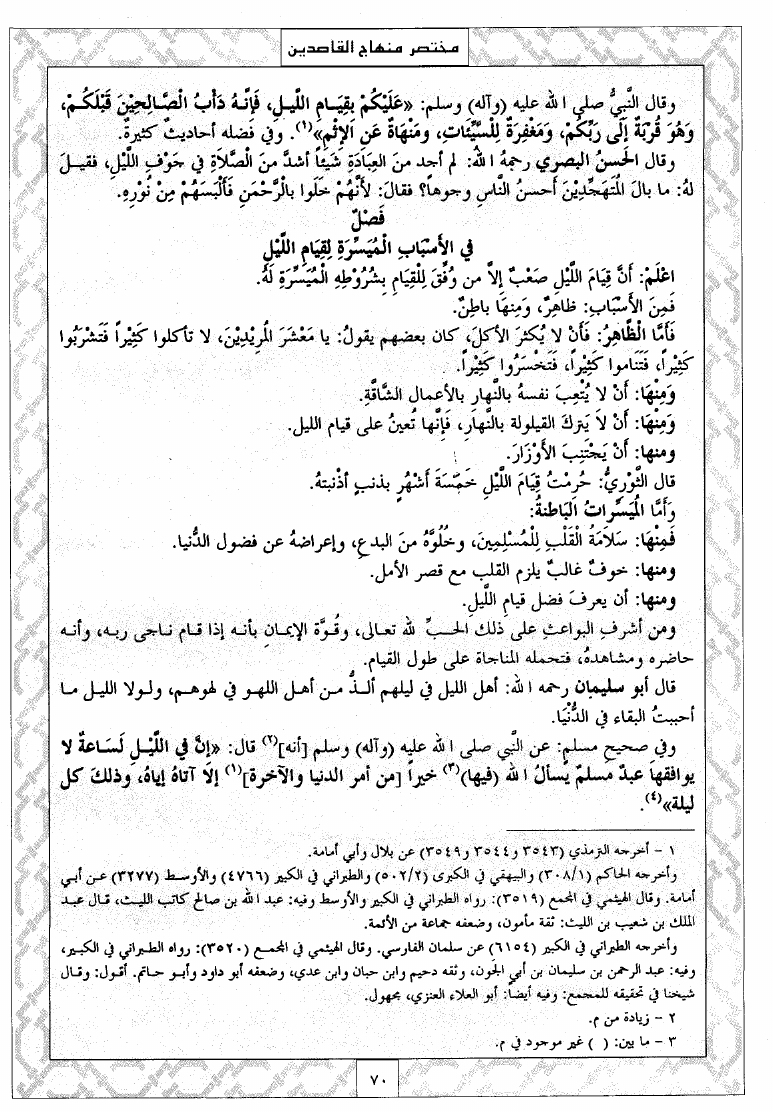 مختصر منهاج القاصدين
وقال النَّبيُّ صلى الله عليه (وآله) وسلم: «عَلَيْكُمْ بِقِيَامِ اللَّيلِ، فَإِنَّهُ دَأبُ الصَّالِحِيْنَ قَبْلَكُمْ،
وَهُوَ قُرْبَةٌ إِلَى رَبِّكُمْ، وَمَغْفِرَةٌ لِلْسَّيِّئَاتِ، وَمَنْهَاةٌ عَنِ الإِثْمِ»(١). وفي فضله أحاديثٌ كثيرة.
وقال الحَسنُ البَصري رحمهُ اللهُ: لم أجد منَ العِبَادَةِ شَيْئاً أشدَّ منَ الصَّلاةِ في جَوْفِ اللَّيْلِ، فقيلَ
لهُ: ما بالَ المُتَهَجِّدِيْنَ أحسنُ الناسِ وجوهاً؟ فقالَ: لأَنَّهُمْ خَلَوا بالْرَّحْمَنِ فَأَلْبَسَهُمْ مِنْ نُوْرِهِ.
فَصْلٌ
في الأَسْبَابِ الْمُيَسِّرَةِ لِقِيَامِ اللَّيْلِ
اعْلَمْ: أَنَّ قِيَامَ اللَّيْلِ صَعْبٌ إِلاَّ من وُفِّقَ لِلْقِيَامِ بِشُرُوْطِهِ الْمُيَسِّرَةِ لَهُ.
فَمِنَ الأَسْبَابِ: ظاهِرٌ، وَمِنهَا باطِنٌ.
فَأَمَّا الْظَّاهِرُ: فَأَنْ لا يُكثرَ الأكلَ، كان بعضهم يقولُ: يا مَعْشَرَ المُرِيْدِيْنَ، لا تأكلوا كَثِيْراً فَتَشْرَبُوا
كَثِيْراً، فَتَناموا كَثِيْراً، فَتَخْسَرُوا كَثِيْراً.
وَمِنْهَا: أَنْ لا يُتْعِبَ نفسهُ بالنَّهارِ بالأعمالِ الشَّاقَّةِ.
وَمِنْهَا: أَنْ لاَ يَتركَ القيلولة بالنَّهارِ، فَإنَّها تُعينُ على قيام الليل.
ومنها: أَنْ يَجْتَنِبَ الأَوْزَارَ.
قال الثَّوْرِيُّ: حُرِمْتُ قِيَامَ اللَّيْلِ خَمْسَةَ أَشْهُرٍ بذنبٍ أذْنبتهُ.
وَأَمَّا المُيَسِّرَاتُ البَاطنةُ:
فَمِنْهَا: سَلاَمَةُ الْقَلْبِ لِلْمُسْلِمِينَ، وخُلُوَّهُ منَ البدعِ، وإعراضهُ عن فضول الدُّنيا.
ومنها: خوفٌ غالبٌ يلزم القلب مع قصر الأمل.
ومنها: أن يعرفَ فضل قيامِ اللَّيلِ.
ومن أشرفِ البواعثِ على ذلك الحبِّ لله تعالى، وقُوَّة الإيمانِ بأنه إذا قام ناجى ربه، وأنه
حاضره ومشاهدهُ، فتحمله المناجاة على طول القيام.
قال أبو سليمان رحمه الله: أهل الليل في ليلهم ألذُّ من أهل اللهو في لهوهم، ولولا الليل ما
أحببتُ البقاء في الدُّنْيَا.
وفي صحيحِ مسلمٍ: عن النَّبي صلى الله عليه (وآله) وسلم [أنه](٢) قال: «إنَّ في اللَّيْلِ لَسَاعةٌ لا
يوافقها عبدٌ مسلمٌ يسألُ الله (فيها)(٣) خيراً [من أمر الدنيا والآخرة](١) إلاَّ آتاهُ إياهُ، وذلك كل
ليلة»(٤).
١ – أخرجه الترمذي (٣٥٤٣ و٣٥٤٤ و٣٥٤٩) عن بلال وأبي أمامة.
وأخرجه الحاكم (٣٠٨/١) والبيهقي في الكبرى (٥٠٢/٢) والطبراني في الكبير (٤٧٦٦) والأوسط (٣٢٧٧) عن أبي
أمامة. وقال الهيثمي في المجمع (٣٥١٩): رواه الطبراني في الكبير والأوسط وفيه: عبد الله بن صالح كاتب الليث، قال عبد
الملك بن شعيب بن الليث: ثقة مأمون، وضعفه جماعة من الأئمة.
وأخرجه الطبراني في الكبير (٦١٥٤) عن سلمان الفارسي. وقال الهيثمي في المجمع (٣٥٢٠): رواه الطبراني في الكبير،
وفيه: عبد الرحمن بن سليمان بن أبي الجون، وثقه دحيم وابن حبان وابن عدي، وضعفه أبو داود وأبو حاتم. أقول: وقال
شيخنا في تحقيقه للمجمع: وفيه أيضاً: أبو العلاء العنزي، مجهول.
٢ – زيادة من م.
٣ – ما بين: ( ) غير موجود في م.
٧٠